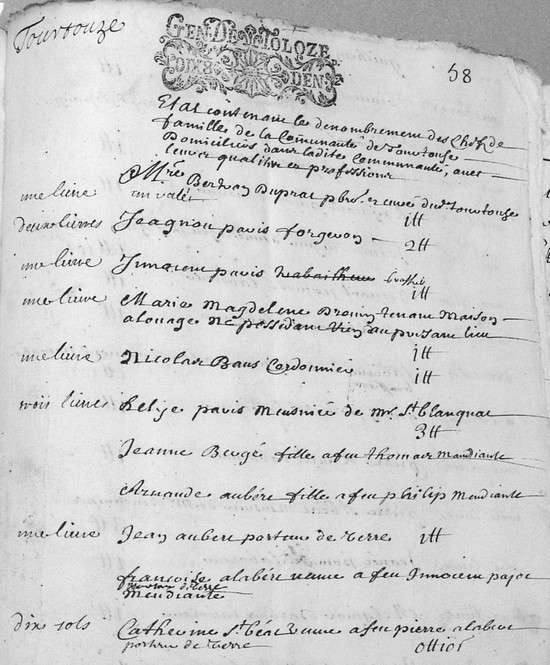 Tourtouze
GEN DE TOLOZE
DIX 8 DEN
58
Etat contenant le denombrement des Chefs de
familles de la Communauté de Tourtouse
Domiciliés dans ladite Communauté, avec
leurs qualités et professions
une livre Mre Bertran Duprat pbre et curé dud Tourtouse
un valet 1tt
deux livres Jaagnou pavis forgeron 2tt
une livre Innocent pavis 1tt
une livre Marie Magdelene tenant Maison
a louage Ne possidant rien au present lieu 1tt
une livre Nicolas Baus Cordonnier 1tt
trois livres pavis Meusnié de Mr St Blanquat
3tt
Jeanne Bergé fille a feu thomas Mandiante
Arnaude aubére fille a feu philip Mendiante
une livre Jean aubert de terre 1tt
françoise alabert veuve a feu Innocent pajot
Mendiante
dix sols Catherine St béat veuve a feu pierre alabert
de terre 0tt10s